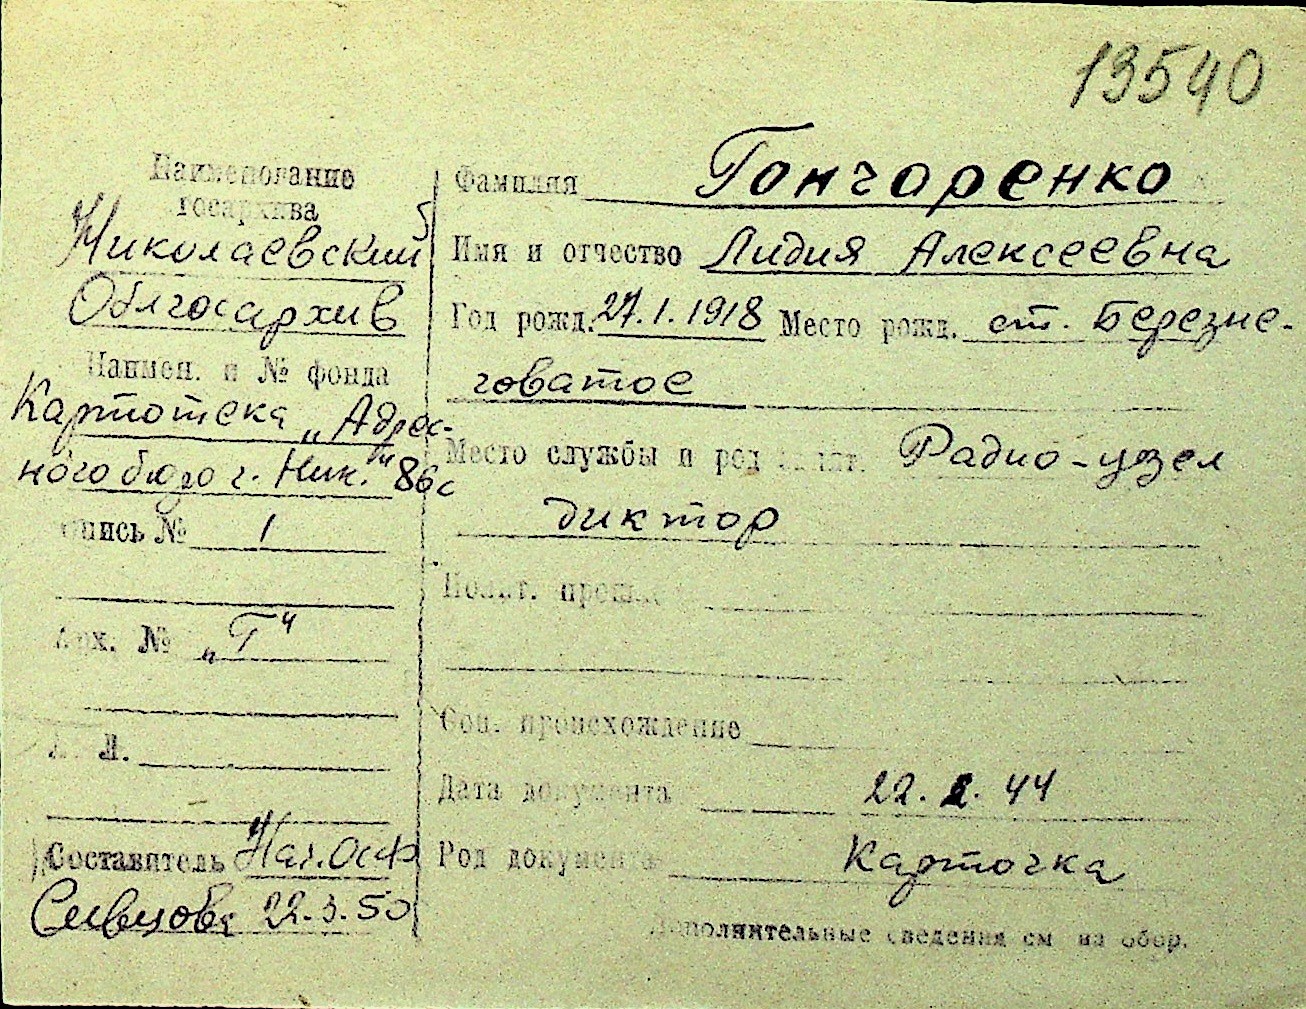 13540
Наименование
госархива
Николаевский
Облгосархив
Наимен. и № фонда
Картотека „Адрес-
ного бюро г. Ник." 86с
Опись № 1
Арх. № „Г"
Л. Л.
Составитель Нач. ОСФ
Сивцова 22.3.50
Фамилия Гончоренко
Имя и отчество Лидия Алексеевна
Год рожд. 27.1.1918 Место рожд. ст. Березне-
говатое
Место службы и род занят. Радио-узел
диктор
Полит. прошл.
Соц. происхождение
Дата документа 22. 2. 44
Род документа Карточка
Дополнительные сведения см на обор.